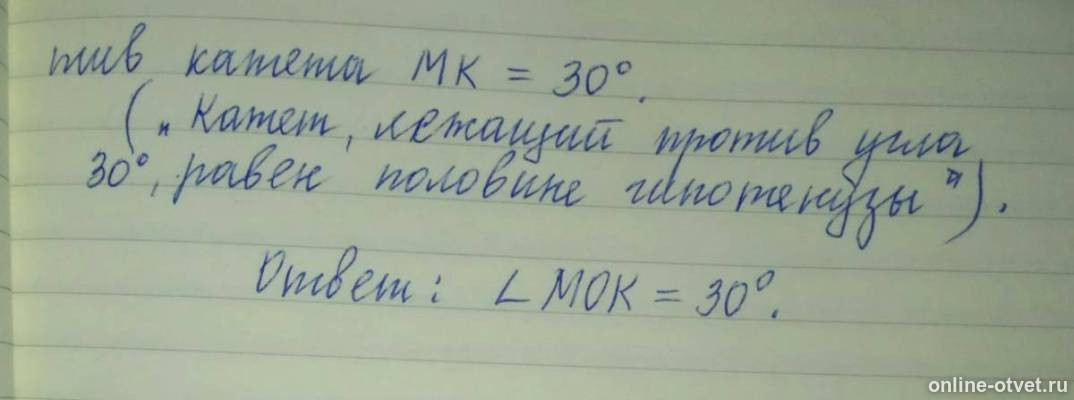 тив катета МК = 30°.
(„Катет, лежащий против угла
30°, равен половине гипотенузы").
Ответ: ∠МОК = 30°.
online-otvet.ru